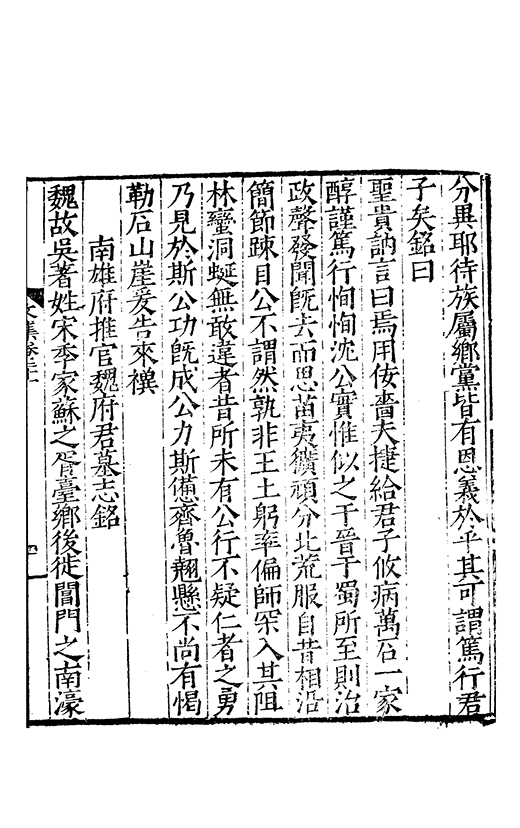 分異耶待族屬鄉黨皆有恩義於乎其可謂篤行君
子矣銘曰
聖貴訥言曰焉用佞嗇夫捷給君子攸病萬石一家
醇謹篤行恂恂沈公實惟似之于晉于蜀所至則治
政聲發聞旣去而思苗夷獷頑分北荒服自昔相沿
簡節踈目公不謂然孰非王土躬率偏師罙入其阻
林蠻洞蜒無敢違者昔所未有公行不疑仁者之勇
乃見於斯公功旣成公力斯憊齊魯翹懸不尚有愒
勒石山崖爰告來襈
南雄府推官魏府君墓志銘
魏故吳著姓宋季家蘇之胥臺鄉後徙閶門之南濠